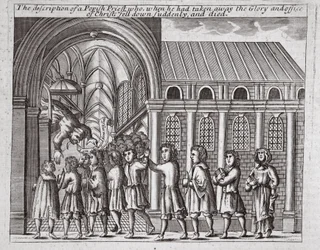 The description of a Popish Priest who, when he had taken away the Glory and office
of Christ fell down suddenly, and died.